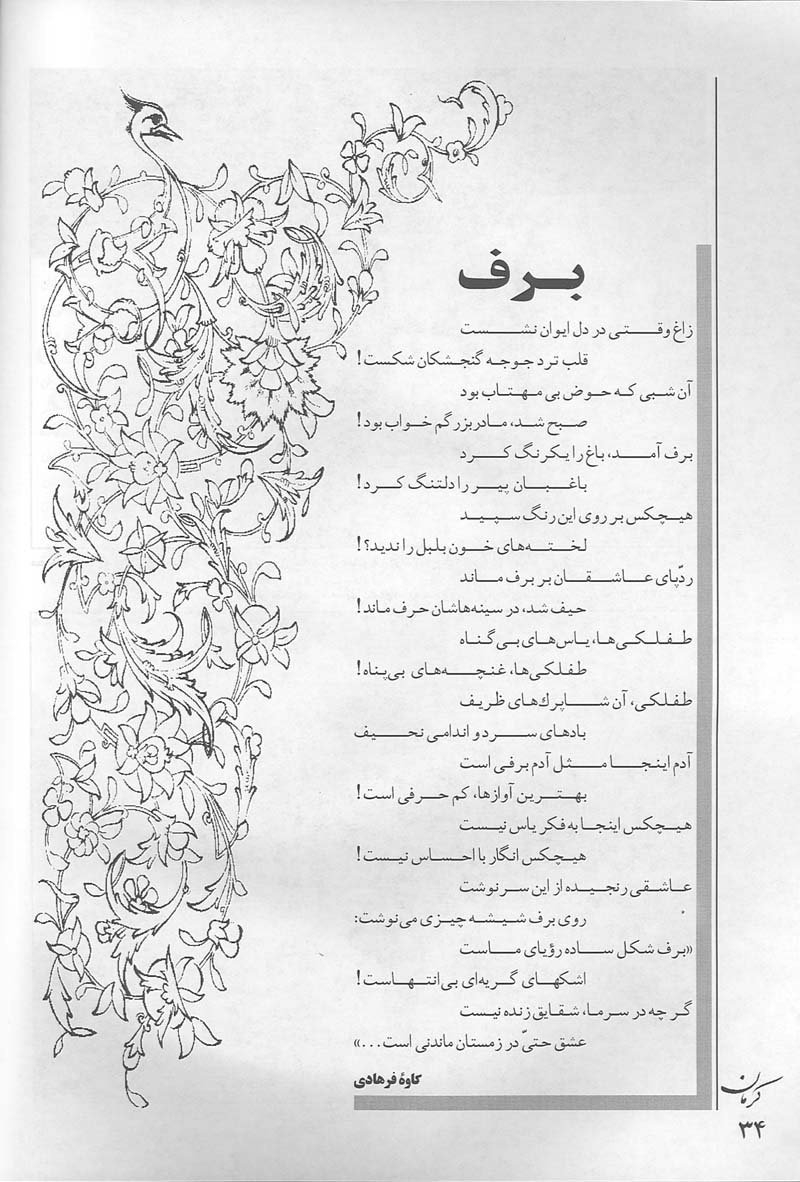 برف
زاغ وقتی در دل ایوان نشست
قلب ترد جوجه گنجشکان شکست!
آن شبی که حوض بی مهتاب بود
صبح شد، مادربزرگم خواب بود!
برف آمد، باغ را یکرنگ کرد
باغبان پیر را دلتنگ کرد!
هیچکس بر روی این رنگ سپید
لخته‌های خون بلبل را ندید؟!
ردّپای عاشقان بر برف ماند
حیف شد، در سینه‌هاشان حرف ماند!
طفلکی‌ها، یاس‌های بی‌گناه
طفلکی‌ها، غنچه‌های بی‌پناه!
طفلکی، آن شاپرك‌های ظریف
بادهای سرد و اندامی نحیف
آدم اینجا مثل آدم برفی است
بهترین آوازها، کم حرفی است!
هیچکس اینجا به فکر یاس نیست
هیچکس انگار با احساس نیست!
عاشقی رنجیده از این سرنوشت
روی برف شیشه چیزی می‌نوشت:
«برف شکل ساده رؤیای ماست
اشکهای گریه‌ای بی‌انتهاست!
گر چه در سرما، شقایق زنده نیست
عشق حتیّ در زمستان ماندنی است...»
کاوهٔ فرهادی
کرمان
۳۴